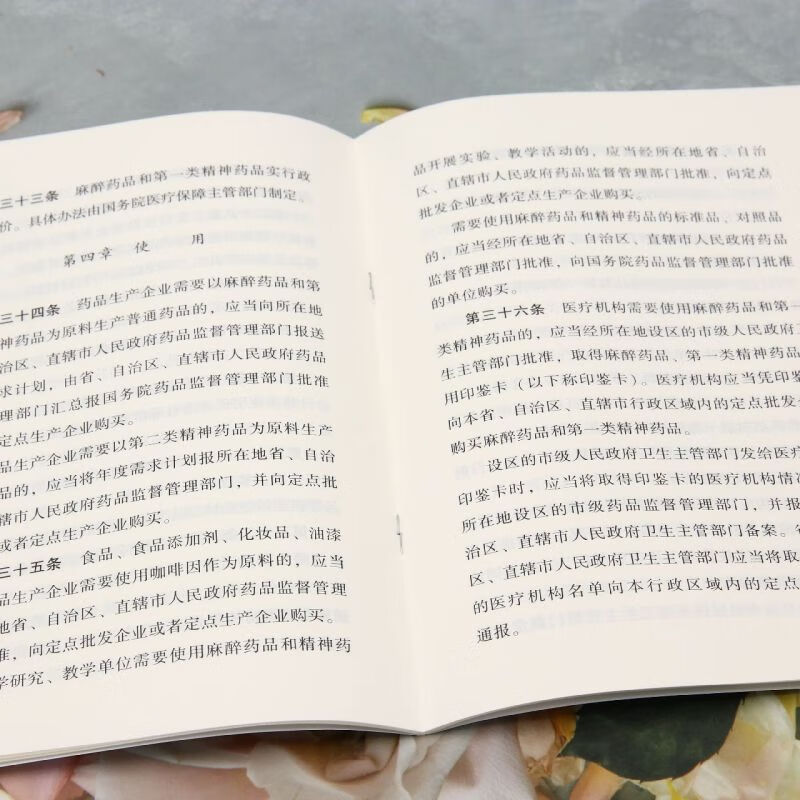 三十三条　麻醉药品和第一类精神药品实行政
价。具体办法由国务院医疗保障主管部门制定。
第四章　使　用
三十四条　药品生产企业需要以麻醉药品和第
神药品为原料生产普通药品的，应当向所在地
治区、直辖市人民政府药品监督管理部门报送
求计划，由省、自治区、直辖市人民政府药品
理部门汇总报国务院药品监督管理部门批准
定点生产企业购买。
品生产企业需要以第二类精神药品为原料生产
品的，应当将年度需求计划报所在地省、自治
辖市人民政府药品监督管理部门，并向定点批
或者定点生产企业购买。
三十五条　食品、食品添加剂、化妆品、油漆
品生产企业需要使用咖啡因作为原料的，应当
地省、自治区、直辖市人民政府药品监督管理
准，向定点批发企业或者定点生产企业购买。
学研究、教学单位需要使用麻醉药品和精神药
品开展实验、教学活动的，应当经所在地省、自治
区、直辖市人民政府药品监督管理部门批准，向定点
批发企业或者定点生产企业购买。
需要使用麻醉药品和精神药品的标准品、对照品
的，应当经所在地省、自治区、直辖市人民政府药品
监督管理部门批准，向国务院药品监督管理部门批准
的单位购买。
第三十六条　医疗机构需要使用麻醉药品和第一
类精神药品的，应当经所在地设区的市级人民政府卫
生主管部门批准，取得麻醉药品、第一类精神药品
用印鉴卡（以下称印鉴卡）。医疗机构应当凭印鉴
向本省、自治区、直辖市行政区域内的定点批发
购买麻醉药品和第一类精神药品。
设区的市级人民政府卫生主管部门发给医疗
印鉴卡时，应当将取得印鉴卡的医疗机构情
所在地设区的市级药品监督管理部门，并报
治区、直辖市人民政府卫生主管部门备案。
区、直辖市人民政府卫生主管部门应当将取
的医疗机构名单向本行政区域内的定点
通报。